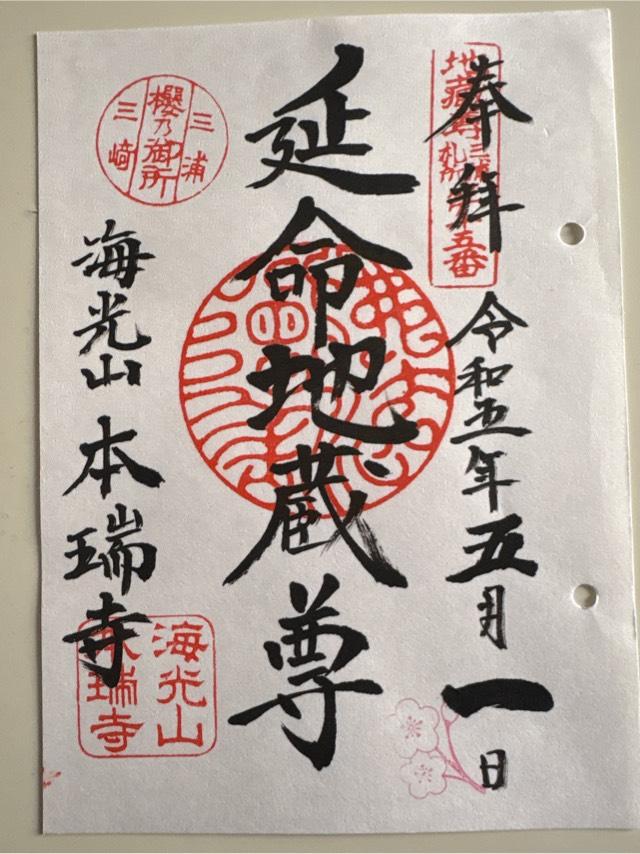 奉拝
令和五年五月一日
延命地蔵尊
海光山 本瑞寺
三浦
櫻乃御所
三崎
海光山
本瑞寺